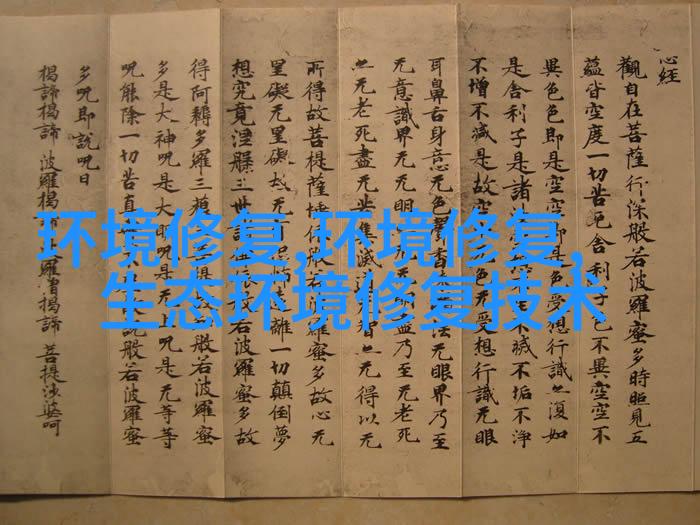 心經
觀自在菩薩行深般若波羅蜜多時照見五
蘊皆空度一切苦厄舍利子色不異空空不
異色色即是空空即是色受想行識亦復如
是舍利子是諸 不滅不垢不淨
不增不減是故空 色无受想行識无眼
耳鼻舌身意无色聲香 法无眼界乃至
无意識界无无明 盡乃至无老死
亦无老死盡无苦集滅道 智亦无得以无
所得故菩提薩埵依般若波羅蜜多故心无
罣礙无罣礙故无 怖遠離一切顛倒夢
想究竟涅槃三世諸 依般若波羅蜜多故
得阿耨多羅三藐 故 般若波羅蜜
多是大神呪是大明呪是无上呪是无等等
呪能除一切苦真 說般若波羅蜜
多呪即說呪曰
揭諦揭諦 波羅揭 羅僧揭諦 菩提莎婆呵
环境修复,环境修复,
生态环境修复技术